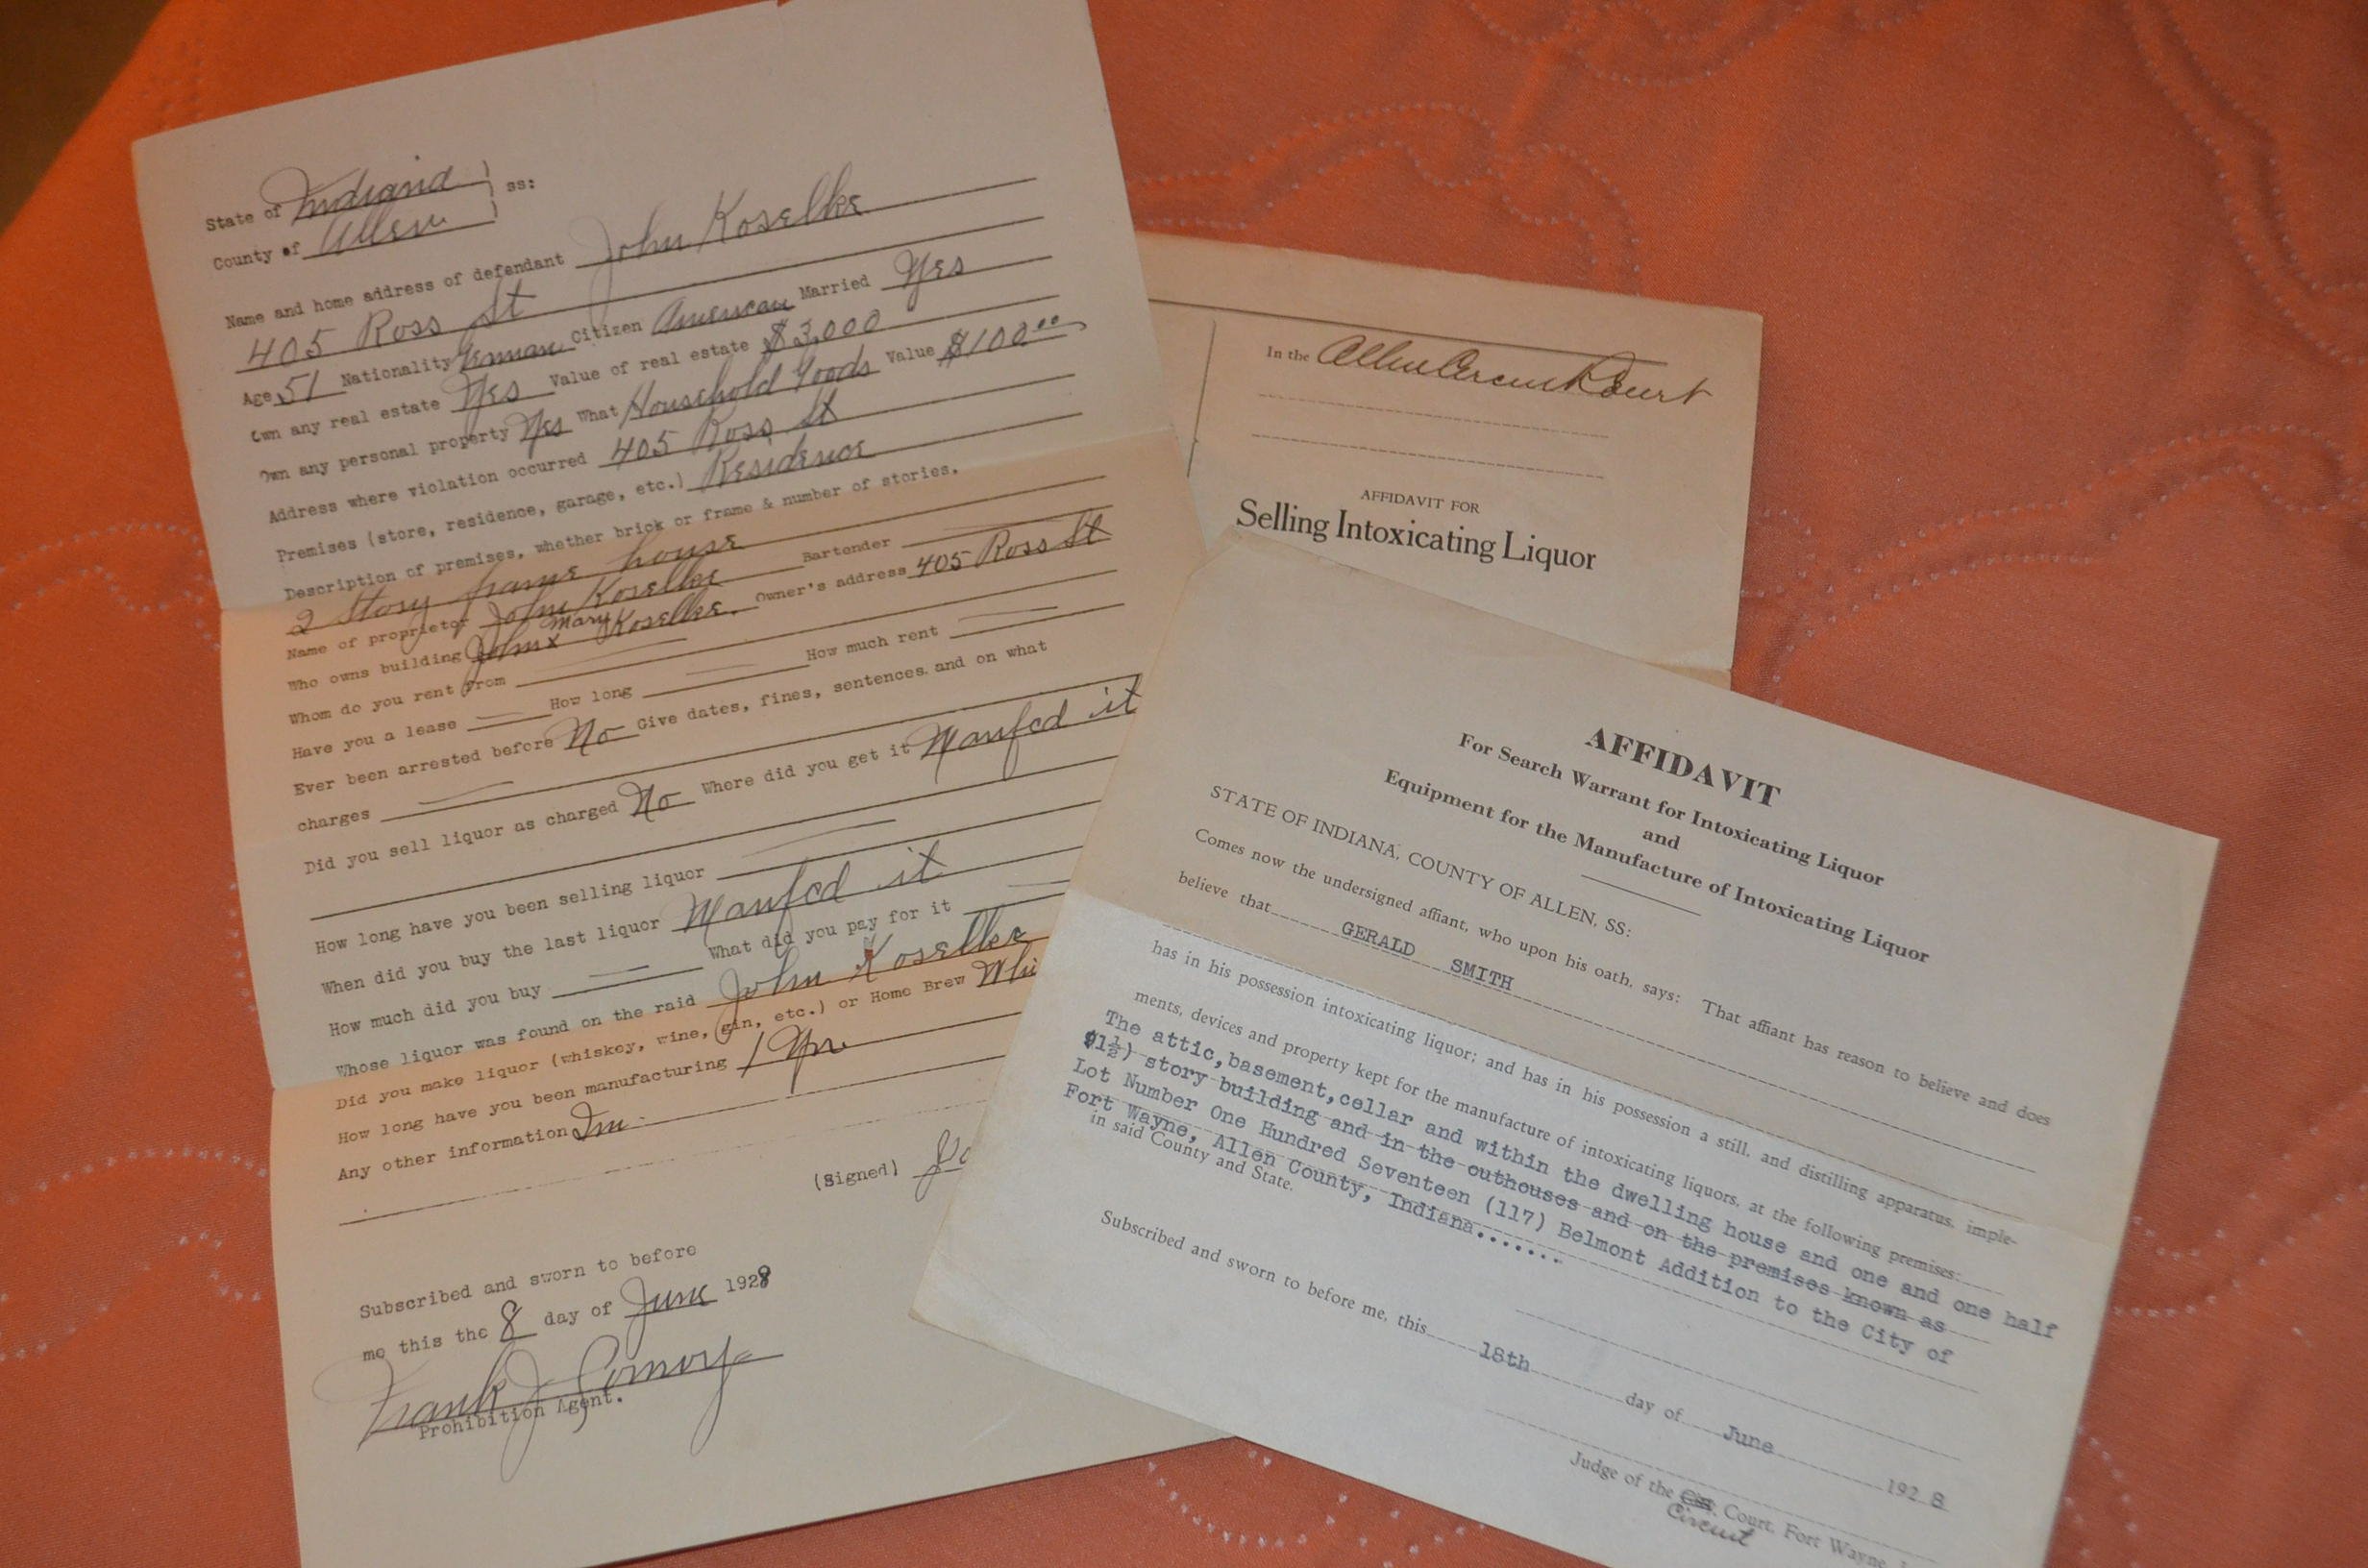 State of Indiana ) ss:
County of Allen
Name and home address of defendant John Koselke
405 Ross St
Age 51 Nationality German Citizen American Married Yes
Own any real estate Yes Value of real estate $3,000
Own any personal property Yes What Household Goods Value $100.00
Address where violation occurred 405 Ross St
Premises (store, residence, garage, etc.) Residence
Description of premises, whether brick or frame & number of stories.
2 Story frame house
Name of proprietor John Koselke Bartender
Who owns building John x Mary Koselke. Owner's address 405 Ross St
Whom do you rent from
Have you a lease How long How much rent
Ever been arrested before No Give dates, fines, sentences and on what
charges
Did you sell liquor as charged No Where did you get it Manfcd it
How long have you been selling liquor
When did you buy the last liquor Manfcd it
How much did you buy What did you pay for it
Whose liquor was found on the raid John Koselke
Did you make liquor (whiskey, wine, gin, etc.) or Home Brew Whi
How long have you been manufacturing 1 Yr
Any other information
(Signed) Jo
Subscribed and sworn to before
me this the 8 day of June 1928
Frank J
Prohibition Agent.
In the Allen Circuit Court
AFFIDAVIT FOR
Selling Intoxicating Liquor
AFFIDAVIT
For Search Warrant for Intoxicating Liquor
and
Equipment for the Manufacture of Intoxicating Liquor
STATE OF INDIANA, COUNTY OF ALLEN, SS:
Comes now the undersigned affiant, who upon his oath, says: That affiant has reason to believe and does
believe that GERALD SMITH
has in his possession intoxicating liquor; and has in his possession a still, and distilling apparatus, imple-
ments, devices and property kept for the manufacture of intoxicating liquors, at the following premises:
The attic,basement,cellar and within the dwelling house and one and one half
(1½) story building and in the outhouses and on the premises known as
Lot Number One Hundred Seventeen (117) Belmont Addition to the City of
Fort Wayne, Allen County, Indiana.......
in said County and State.
Subscribed and sworn to before me, this 18th day of June 1928
Judge of the Court, Fort Wayne,
Circuit